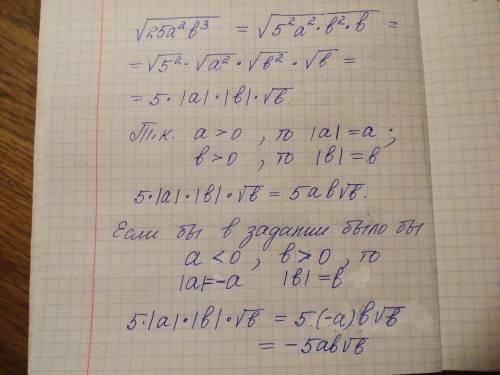 √25a²b³ = √5²a²·b²·b =
= √5² · √a² · √b² · √b =
= 5 · |a| · |b| · √b.
Т.к. a > 0 , то |a| = a ;
b > 0 , то |b| = b
5 · |a| · |b| · √b = 5ab√b.
Если бы в задании было бы
a < 0 , b > 0 , то
|a| = -a |b| = b
5 · |a| · |b| · √b = 5 · (-a) b√b
= -5ab√b